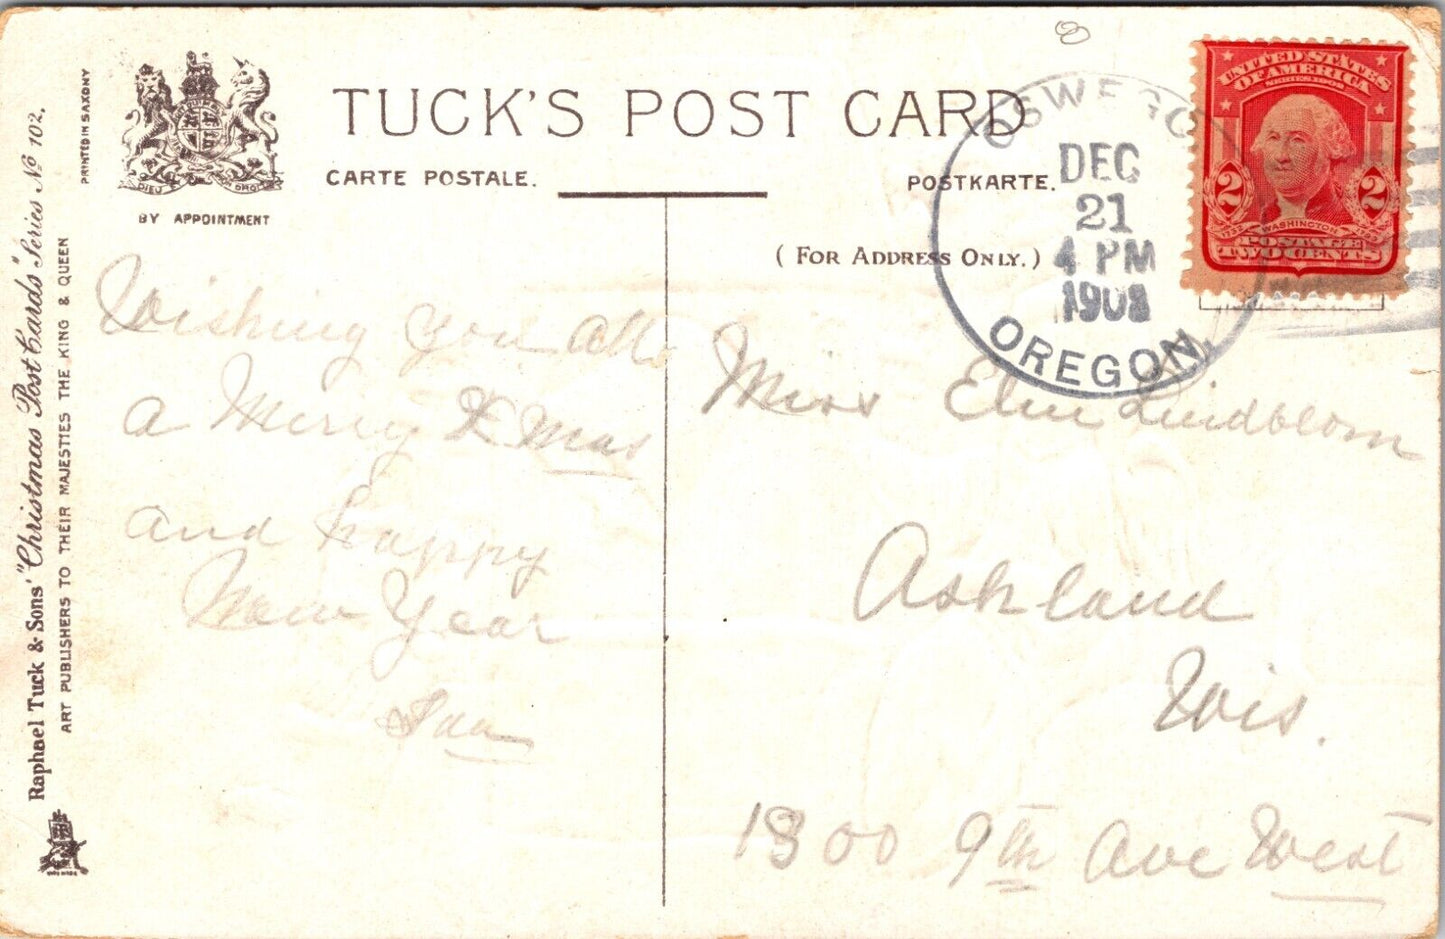 TUCK'S POST CARD
CARTE POSTALE.
POSTKARTE.
(FOR ADDRESS ONLY.)
BY APPOINTMENT
DIEU DROIT
PRINTED IN SAXONY
Raphael Tuck & Sons' "Christmas Post Cards" Series No 102.
ART PUBLISHERS TO THEIR MAJESTIES THE KING & QUEEN
OSWEGO
DEC
21
4 PM
1908
OREGON.
UNITED STATES
OF AMERICA
2 2
1732 WASHINGTON 1799
POSTAGE
TWO CENTS
Wishing you all
a Merry Xmas
and happy
New Year
Miss Lindblom
Ashland
Wis.
1300 9th Ave West